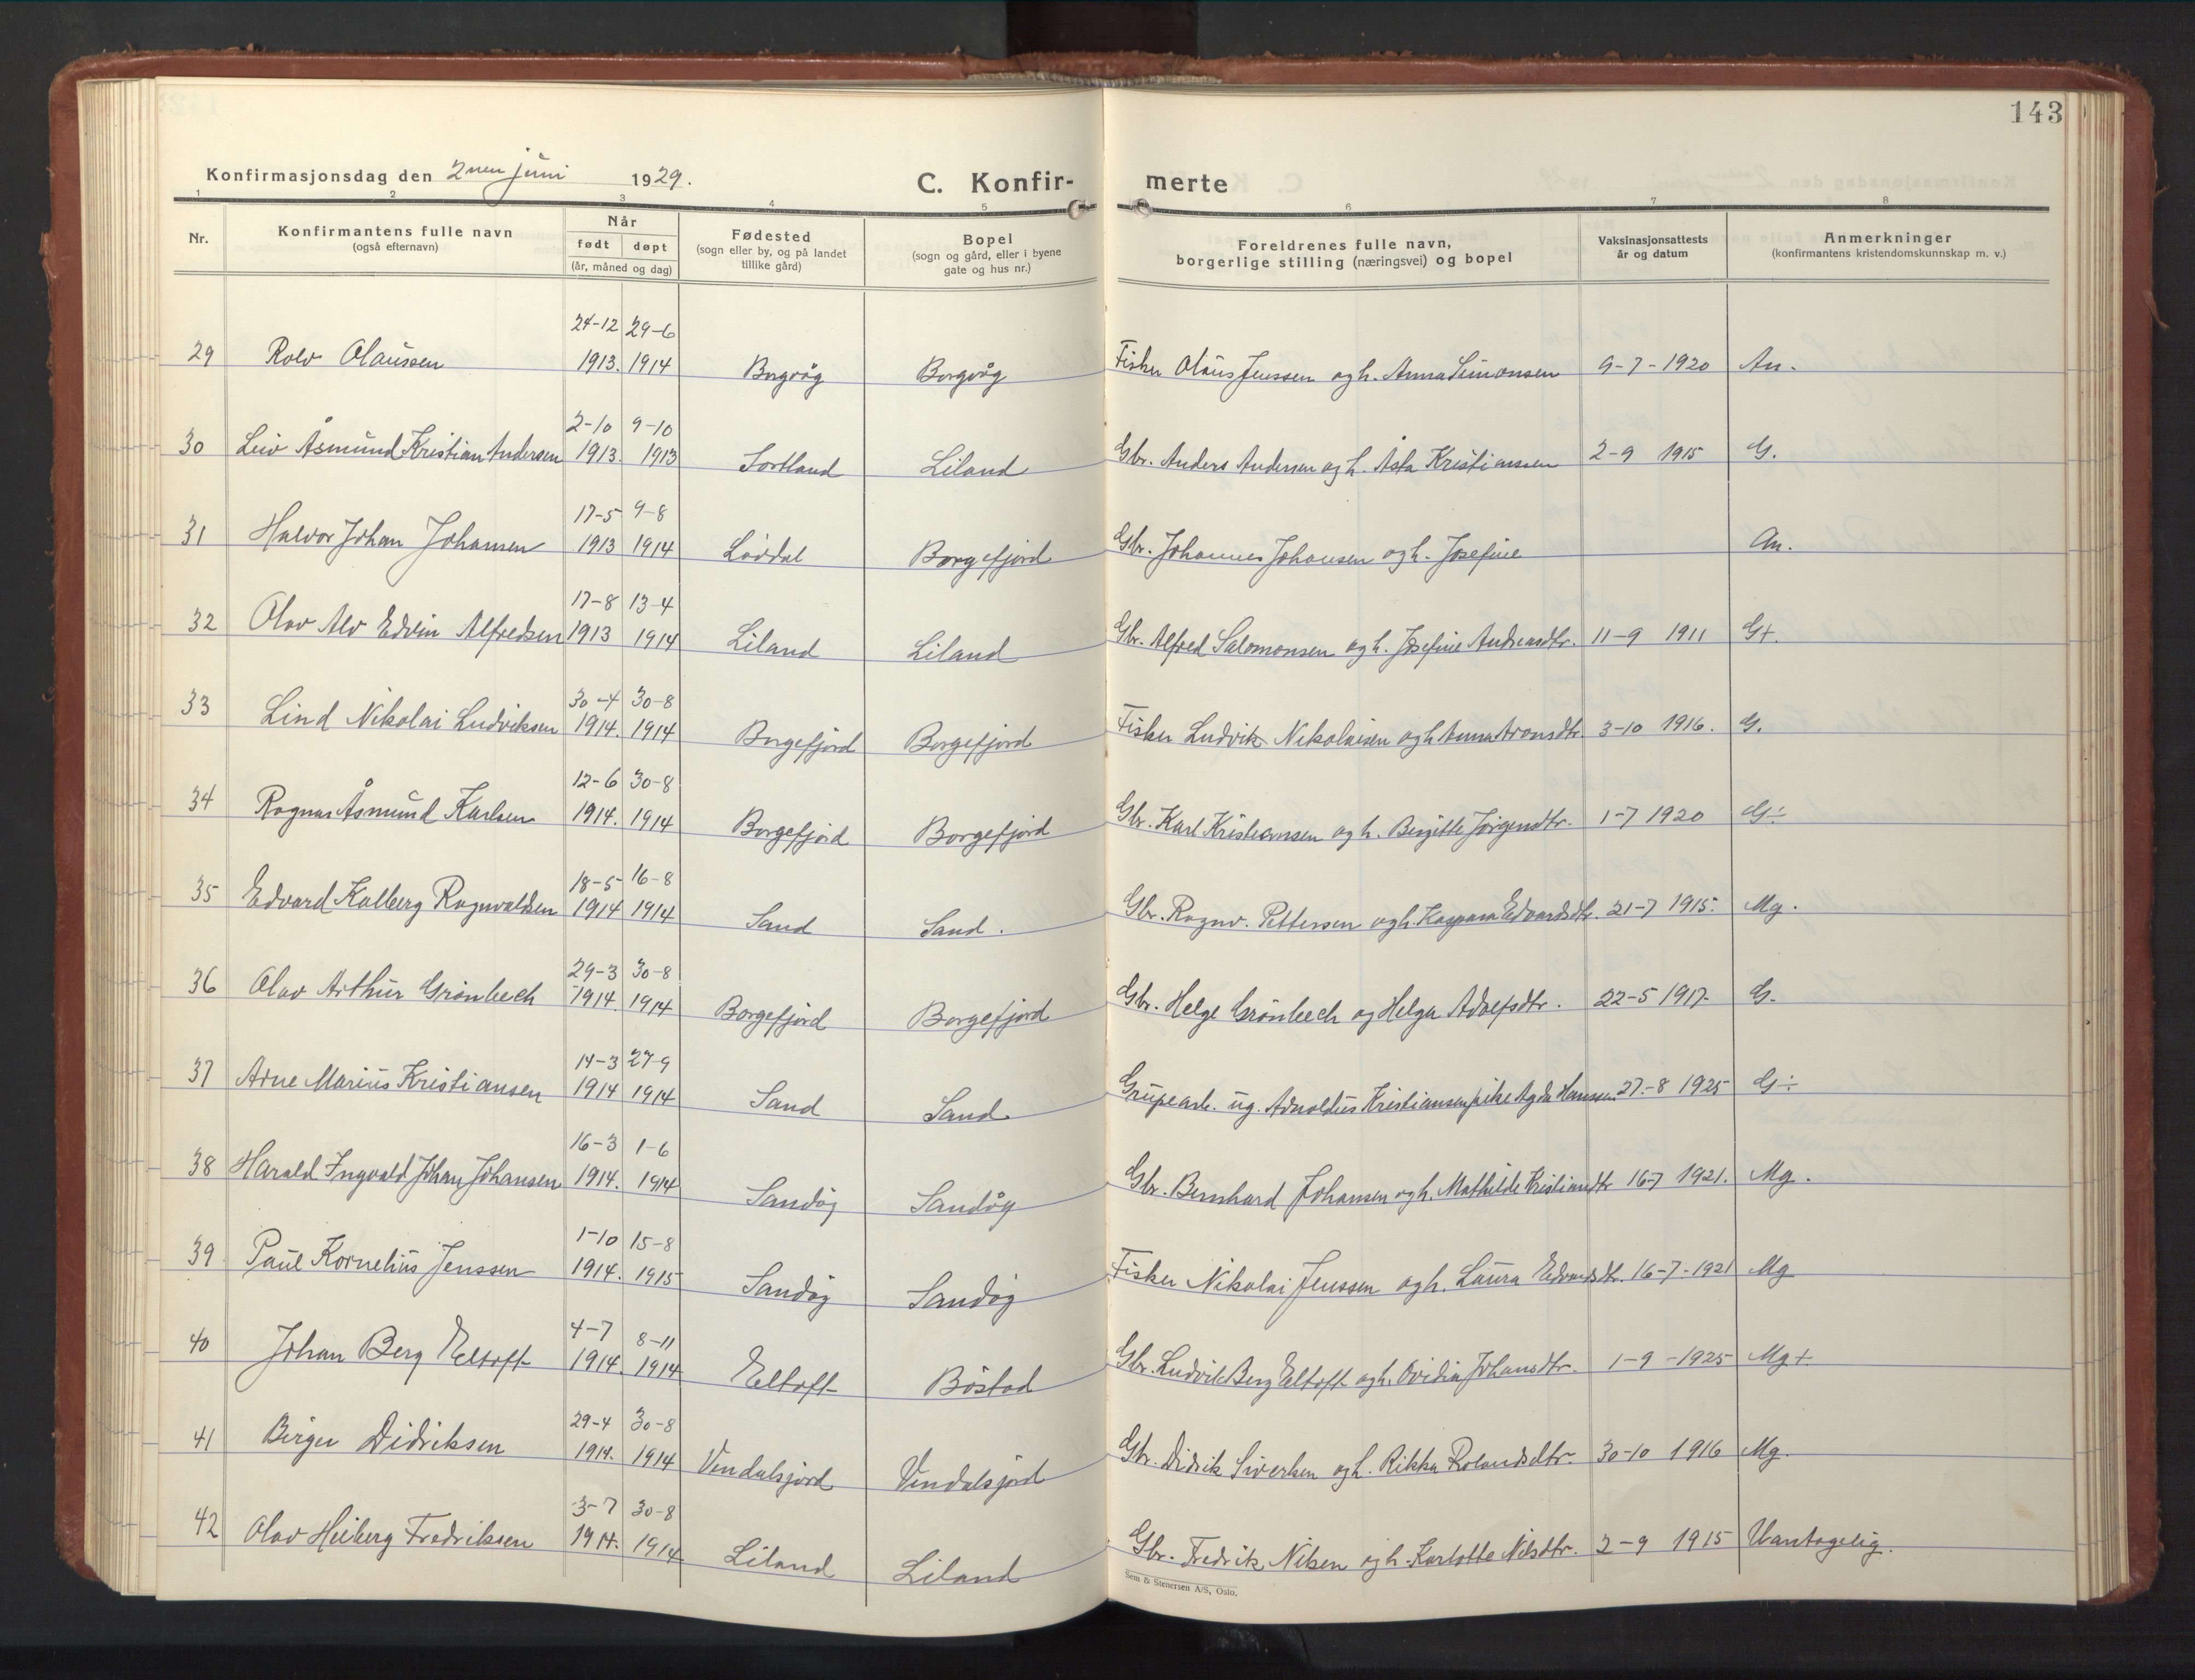 143
Konfirmasjonsdag den 2nen juni 1929.
C. Konfir-
merte
1 2 3 4 5 6 7 8
Nr.
Konfirmantens fulle navn
(også efternavn)
Når
født døpt
(år, måned og dag)
Fødested
(sogn eller by, og på landet
tillike gård)
Bopel
(sogn og gård, eller i byene
gate og hus nr.)
Foreldrenes fulle navn,
borgerlige stilling (næringsvei) og bopel
Vaksinasjonsattests
år og datum
Anmerkninger
(konfirmantens kristendomskunnskap m. v.)
24-12 29-6
29 Rolv Olaussen 1913. 1914 Borgvåg Borgvåg Fisker Olaus Jenssen og h. Anna Simonsen 9-7-1920 An.
2-10 9-10
30 Leiv Åsmund Kristian Andersen 1913. 1913 Sortland Liland Gbr. Anders Andersen og h. Åsta Kristianssen 2-9 1915 G.
17-5 9-8
31 Halvor Johan Johansen 1913 1914 Borgefjord Gbr. Johannes Johansen og h. Josefine An.
17-8 13-4
32 Olav Alv Edvin Alfredsen 1913 1914 Liland Liland Gbr. Alfred Salomonsen og h. Josefine Andreasdtr. 11-9 1911 G+.
30-4 30-8
33 Lind Nikolai Ludviksen 1914. 1914 Borgefjord Borgefjord Fisker Ludvik Nikolaisen og h Anna Aronsdtr. 3-10 1916. G.
12-6 30-8
34 Ragnar Åsmund Karlsen 1914. 1914 Borgefjord Borgefjord Gbr. Karl Kristiansen og h. Birgitte Jørgendtr. 1-7 1920 G÷
18-5 16-8
35 Edvard Kalberg Ragnvaldsen 1914 1914 Sand Sand. Gbr. Ragnv. Pettersen og h. Kaspara Edvardsdtr. 21-7 1915. Mg.
29-3 30-8
36 Olav Arthur Grønbech 1914. 1914 Borgefjord Borgefjord Gbr. Helge Grønbech og Helga Adolfsdtr. 22-5 1917. G.
14-3 27-9
37 Arne Marius Kristiansen 1914 1914 Sand Sand Grupearb. ug. Arnoldus Kristiansen pike Agda Hanssen 27.-8 1925 G÷
16-3 1-6
38 Harald Ingvald Johan Johansen 1914. 1914 Sandøg Sandøg Gbr. Bernhard Johansen og h. Mathilde Kristiandtr 16-7 1921. Mg.
1-10 15-8
39 Paul Kornelius Jenssen 1914. 1915 Sandøg Sandøg Fisker Nikolai Jenssen og h. Laura Edvardsdtr. 16-7-1921 Mg
4-7 8-11
40 Johan Berg Eltoft 1914. 1914 Eltoft Bøstad Gbr. Ludvik Berg Eltoft og h. Ovidia Johansdtr. 1-9-1925 Mg+
29-4 30-8
41 Birger Didriksen 1914. 1914 Vendalsjord Vendalsjord Gbr. Didrik Siverken og h. Rikka Rolandsdtr. 30-10 1916 Mg.
3-7 30-8
42 Olav Heiberg Fredriksen 1914. 1914 Liland Liland Gbr. Fredrik Nilsen og h. Karlotte Nilsdtr. 2-9 1915 Uantagelig.
Sem & Stenersen A/S, Oslo.